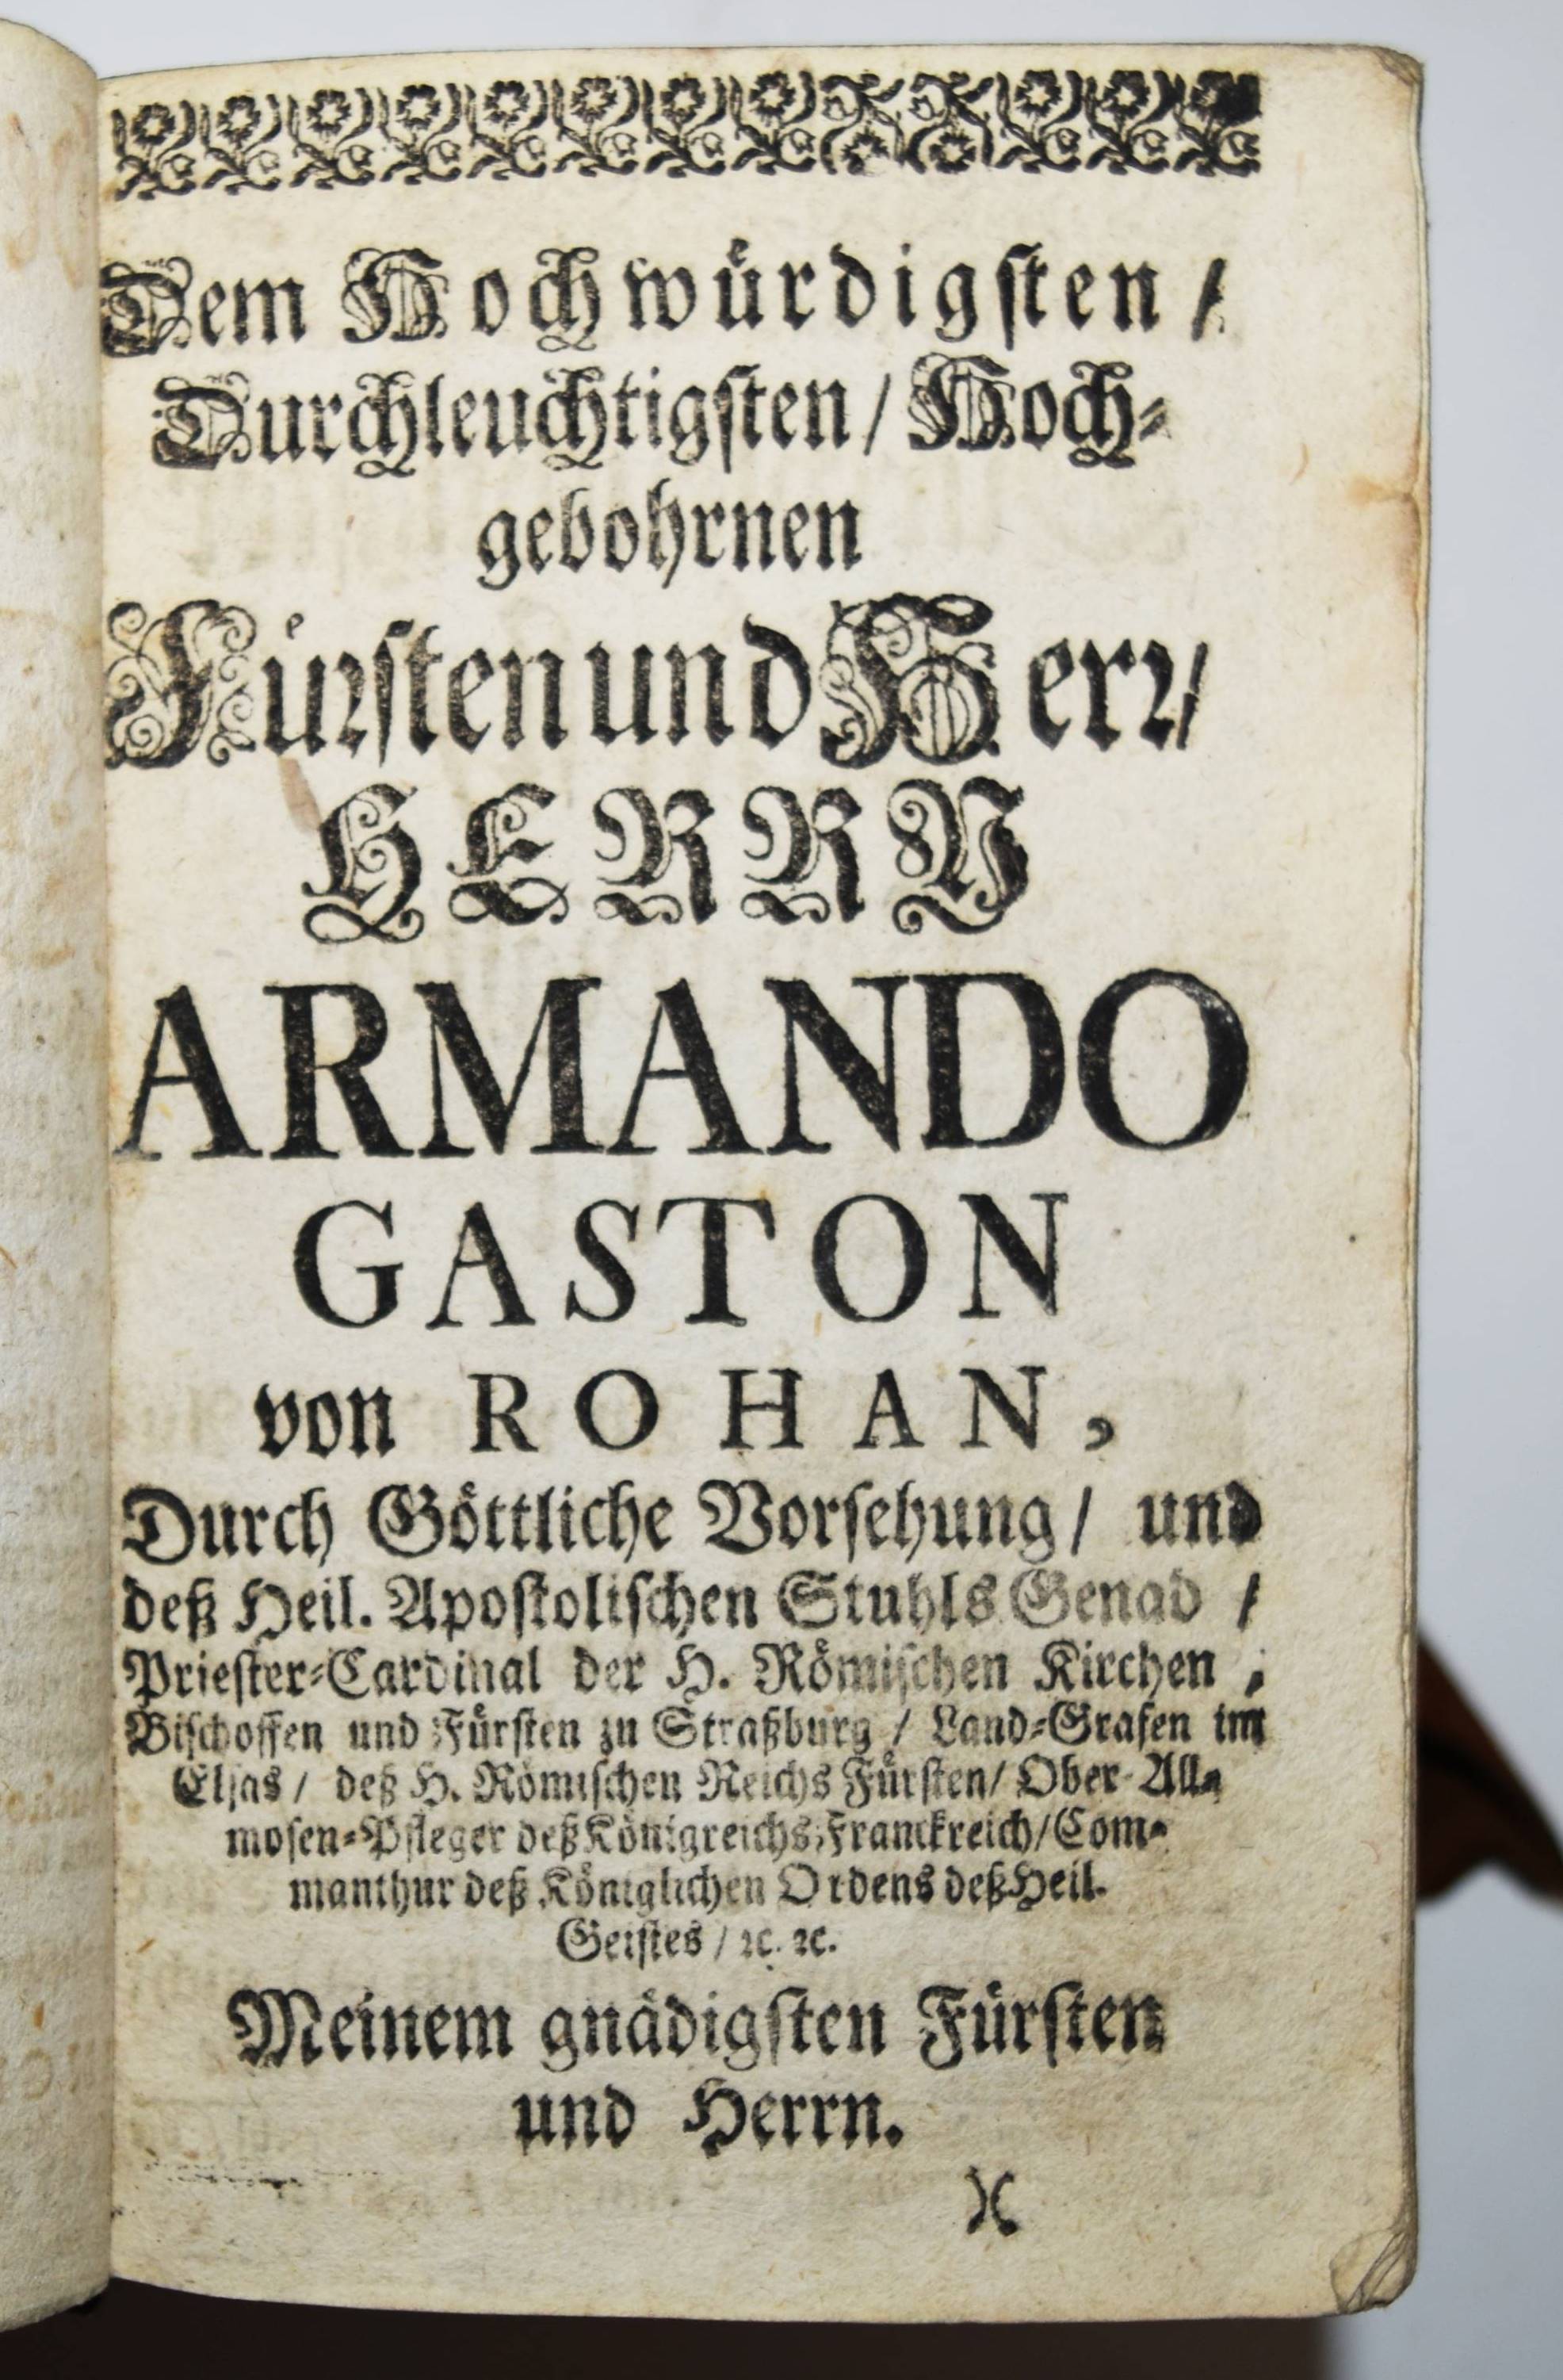 Dem Hochwürdigsten /
Durchleuchtigsten / Hoch-
gebohrnen
Fürsten und Herr /
HERRN
ARMANDO
GASTON
von ROHAN,
Durch Göttliche Vorsehung / und
deß Heil. Apostolischen Stuhls Genad /
Priester-Cardinal der H. Römischen Kirchen ,
Bischoffen und Fürsten zu Straßburg / Land-Grafen im
Elsas / deß H. Römischen Reichs Fürsten / Ober-All-
mosen-Pfleger deß Königreichs Franckreich / Com-
manthur deß Königlichen Ordens deß Heil.
Geistes / ꝛc. ꝛc.
Meinem gnädigsten Fürsten
und Herrn.
)(